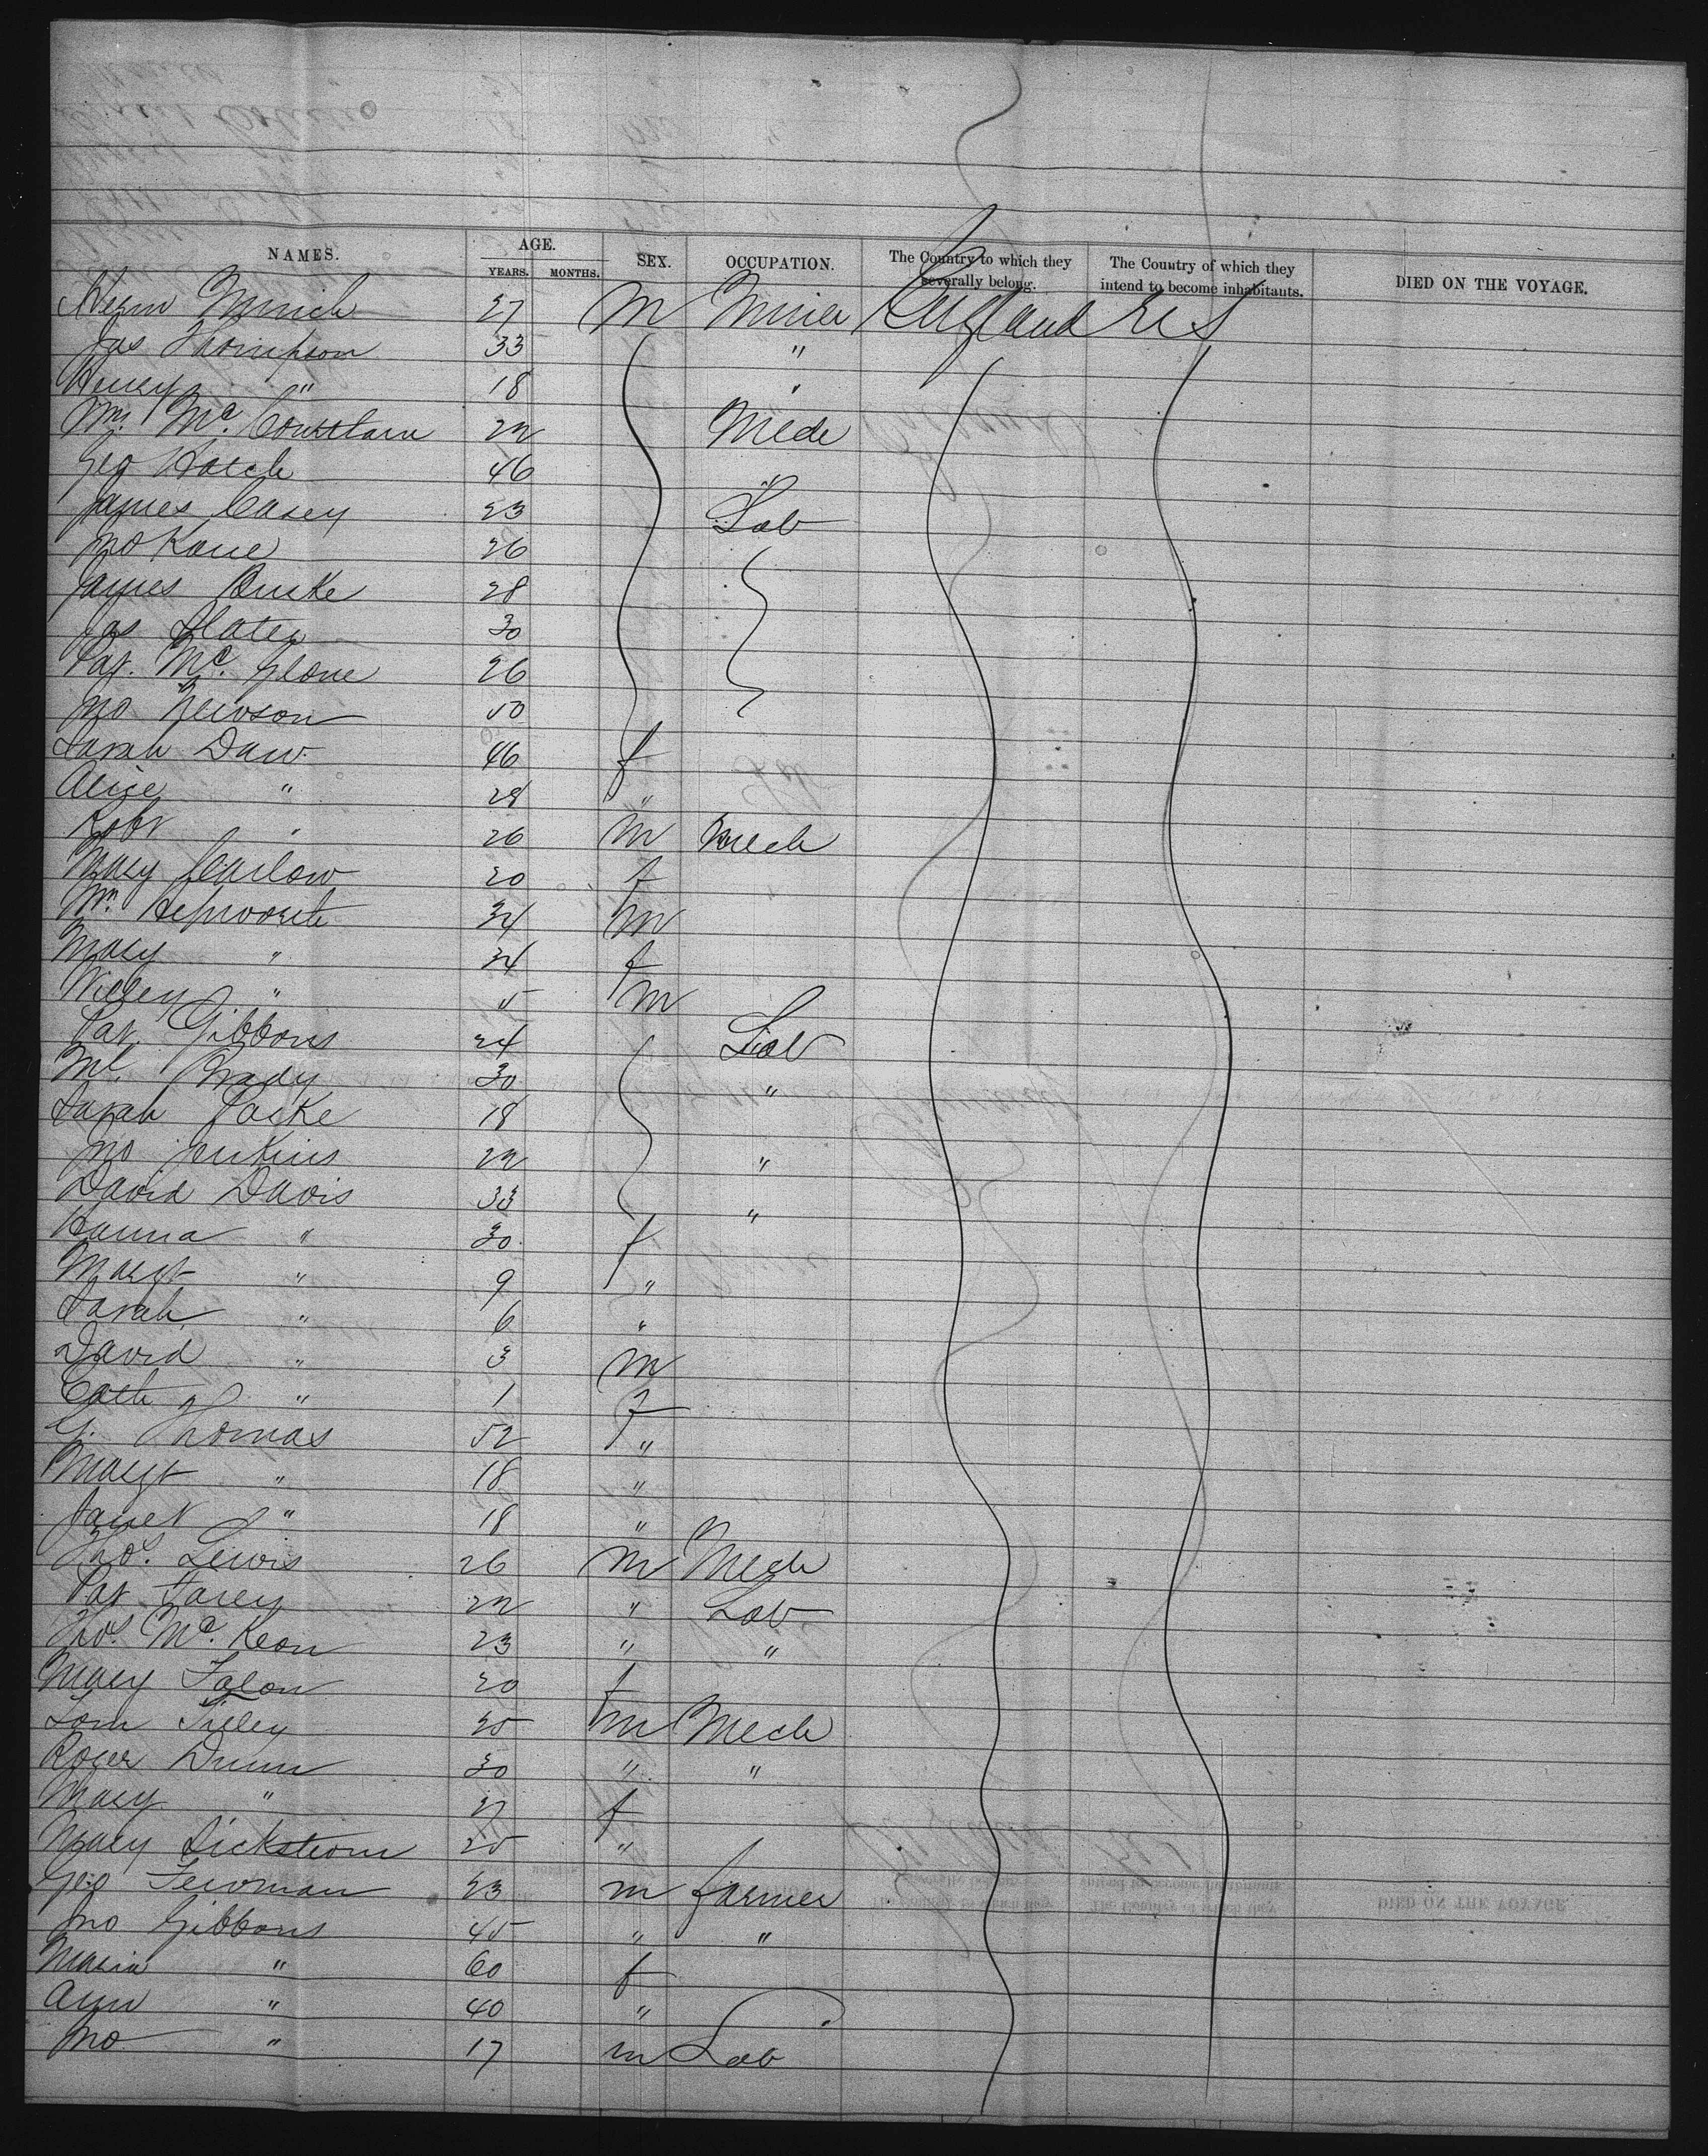 NAMES. AGE. SEX. OCCUPATION. The Country to which they severally belong. The Country of which they intend to become inhabitants. DIED ON THE VOYAGE.
YEARS. MONTHS.
27 M Miner England U S
Jas Thompson 33 "
Henry " 18 "
Wm. Mc. 22 Mede
Geo Hatch 46 "
James Casey 23 Lab
Jno Kane 26
James Burke 28
Jas Slater 30
Pat. Mc. Glone 26
Jno Newson 50
Sarah Daw 46 f
Alice " 28 "
Robt " 26 M Mech
Mary Carlow 20 f
Wm. Hepworth 34 M
Mary " 34 f
Willey " 5 M
Pat Gibbons 24 Lab
Ml. Brady 30 "
Sarah 18
Jno Jenkins 22 "
David Davis 33 "
Hanna " 30 f
Margt " 9 "
Sarah " 6 "
David " 3 M
Cath " 1 f
G. Thomas 52 "
Margt " 18 "
Janet " 18 "
Thos. Lewis 26 M Mech
Pat 22 " Lab
Thos. Mc. Keon 23 " "
Mary 20 f
Tom Tilley 25 M Mech
Roger Dunn 30 " "
Mary " 27 f
Mary 25 "
Geo 23 m farmer
Jno Gibbons 45 " "
Maria " 60 f
Ann " 40 "
Jno " 17 m Lab